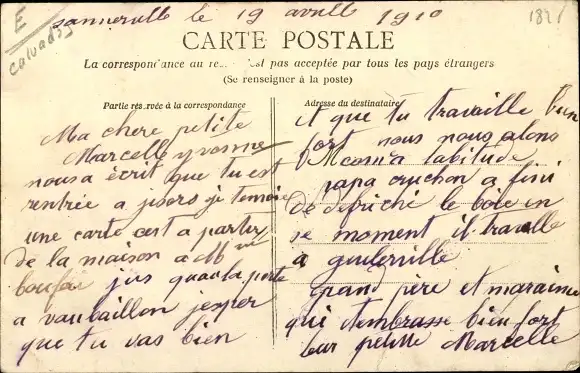 E
calvados
sannerville le 19 avril 1910
1821
CARTE POSTALE
La correspondance au re est pas acceptée par tous les pays étrangers
(Se renseigner à la poste)
Partie réservée à la correspondance
Ma chere petite
Marcelle yvonne
nous a écrit que tu est
rentrée a je
une carte cest a partir
de la maison a Mme
jus quau la porte
a vaubaillon jesper
que tu vas bien
Adresse du destinataire
et que tu travaille bien
fort nous nous alons
labitude
papa cruchon a fini
de defriché le bois en
se moment it travalle
a guilerville
grand père et maraine
qui tembrasse bien fort
leur petitte Marcelle